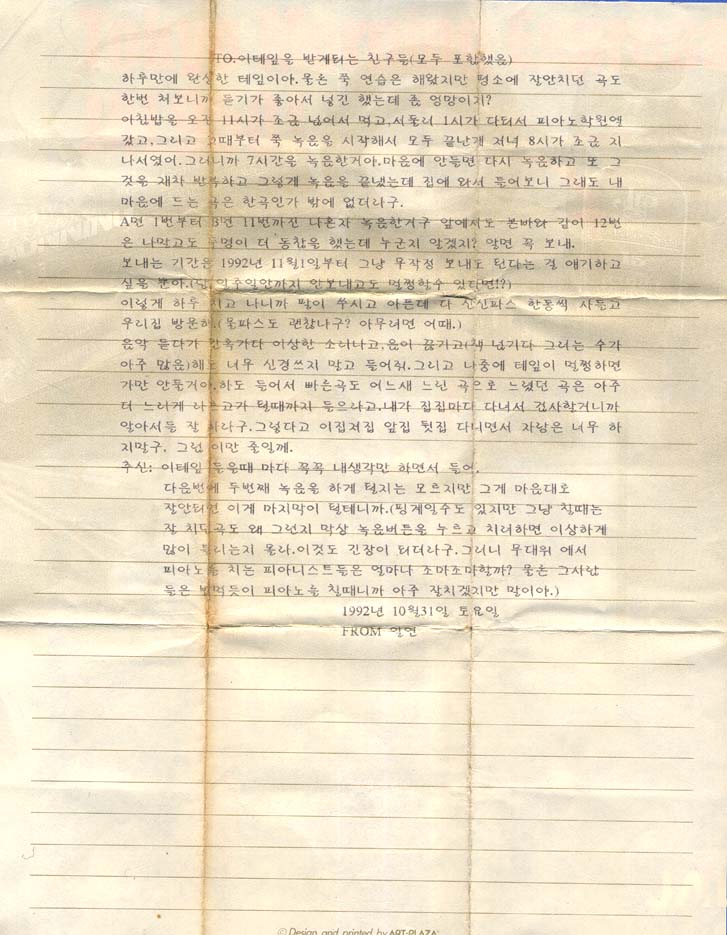 TO.이테잎을 받게되는 친구들(모두 포함했음)
하루만에 완성한 테잎이야.물론 쭉 연습은 해왔지만 평소에 잘안치던 곡도
한번 쳐보니까 듣기가 좋아서 넣긴 했는데 좀 엉망이지?
아침밥을 오전 11시가 조금 넘어서 먹고,서둘러 1시가 다돼서 피아노학원엘
갔고,그리고 그때부터 쭉 녹음을 시작해서 모두 끝난게 저녁 8시가 조금 지
나서였어.그러니까 7시간을 녹음한거야.마음에 안들면 다시 녹음하고 또 그
것을 재차 반복하고 그렇게 녹음을 끝냈는데 집에 와서 들어보니 그래도 내
마음에 드는 곡은 한곡인가 밖에 없더라구.
A면 1번부터 B면 11번까진 나혼자 녹음한거구 앞에서도 본바와 같이 12번
은 나말고도 두명이 더 동참을 했는데 누군지 알겠지? 알면 꼭 보내.
보내는 기간은 1992년 11월1일부터 그냥 무작정 보내도 된다는 걸 얘기하고
싶을 뿐야.(단 일주일안까지 안보내고도 멀쩡할수 있다면!?)
이렇게 하루 치고 나니까 팔이 쑤시고 아픈데 다 신신파스 한통씩 사들고
우리집 방문해.(물파스도 괜찮냐구? 아무러면 어때.)
음악 듣다가 간혹가다 이상한 소리나고,음이 끊기고(책 넘기다 그러는 수가
아주 많음)해도 너무 신경쓰지 말고 들어줘.그리고 나중에 테잎이 멀쩡하면
가만 안둘거야.하도 들어서 빠른곡도 어느새 느린 곡으로 느렸던 곡은 아주
더 느리게 라르고가 될때까지 들으라고.내가 집집마다 다녀서 검사할거니까
알아서들 잘 하라구.그렇다고 이집저집 앞집 뒷집 다니면서 자랑은 너무 하
지말구. 그럼 이만 줄일께.
추신: 이테잎 들을때 마다 꼭꼭 내생각만 하면서 들어.
다음번에 두번째 녹음을 하게 될지는 모르지만 그게 마음대로
잘안되면 이게 마지막이 될테니까.(핑계일수도 있지만 그냥 칠때는
잘 치던곡도 왜 그런지 막상 녹음버튼을 누르고 치려하면 이상하게
많이 틀리는지 몰라.이것도 긴장이 되더라구.그러니 무대위 에서
피아노를 치는 피아니스트들은 얼마나 조마조마할까? 물론 그사람
들은 밥먹듯이 피아노를 칠때니까 아주 잘치겠지만 말이야.)
1992년 10월31일 토요일
FROM 일연
© Design and printed by ART-PLAZA